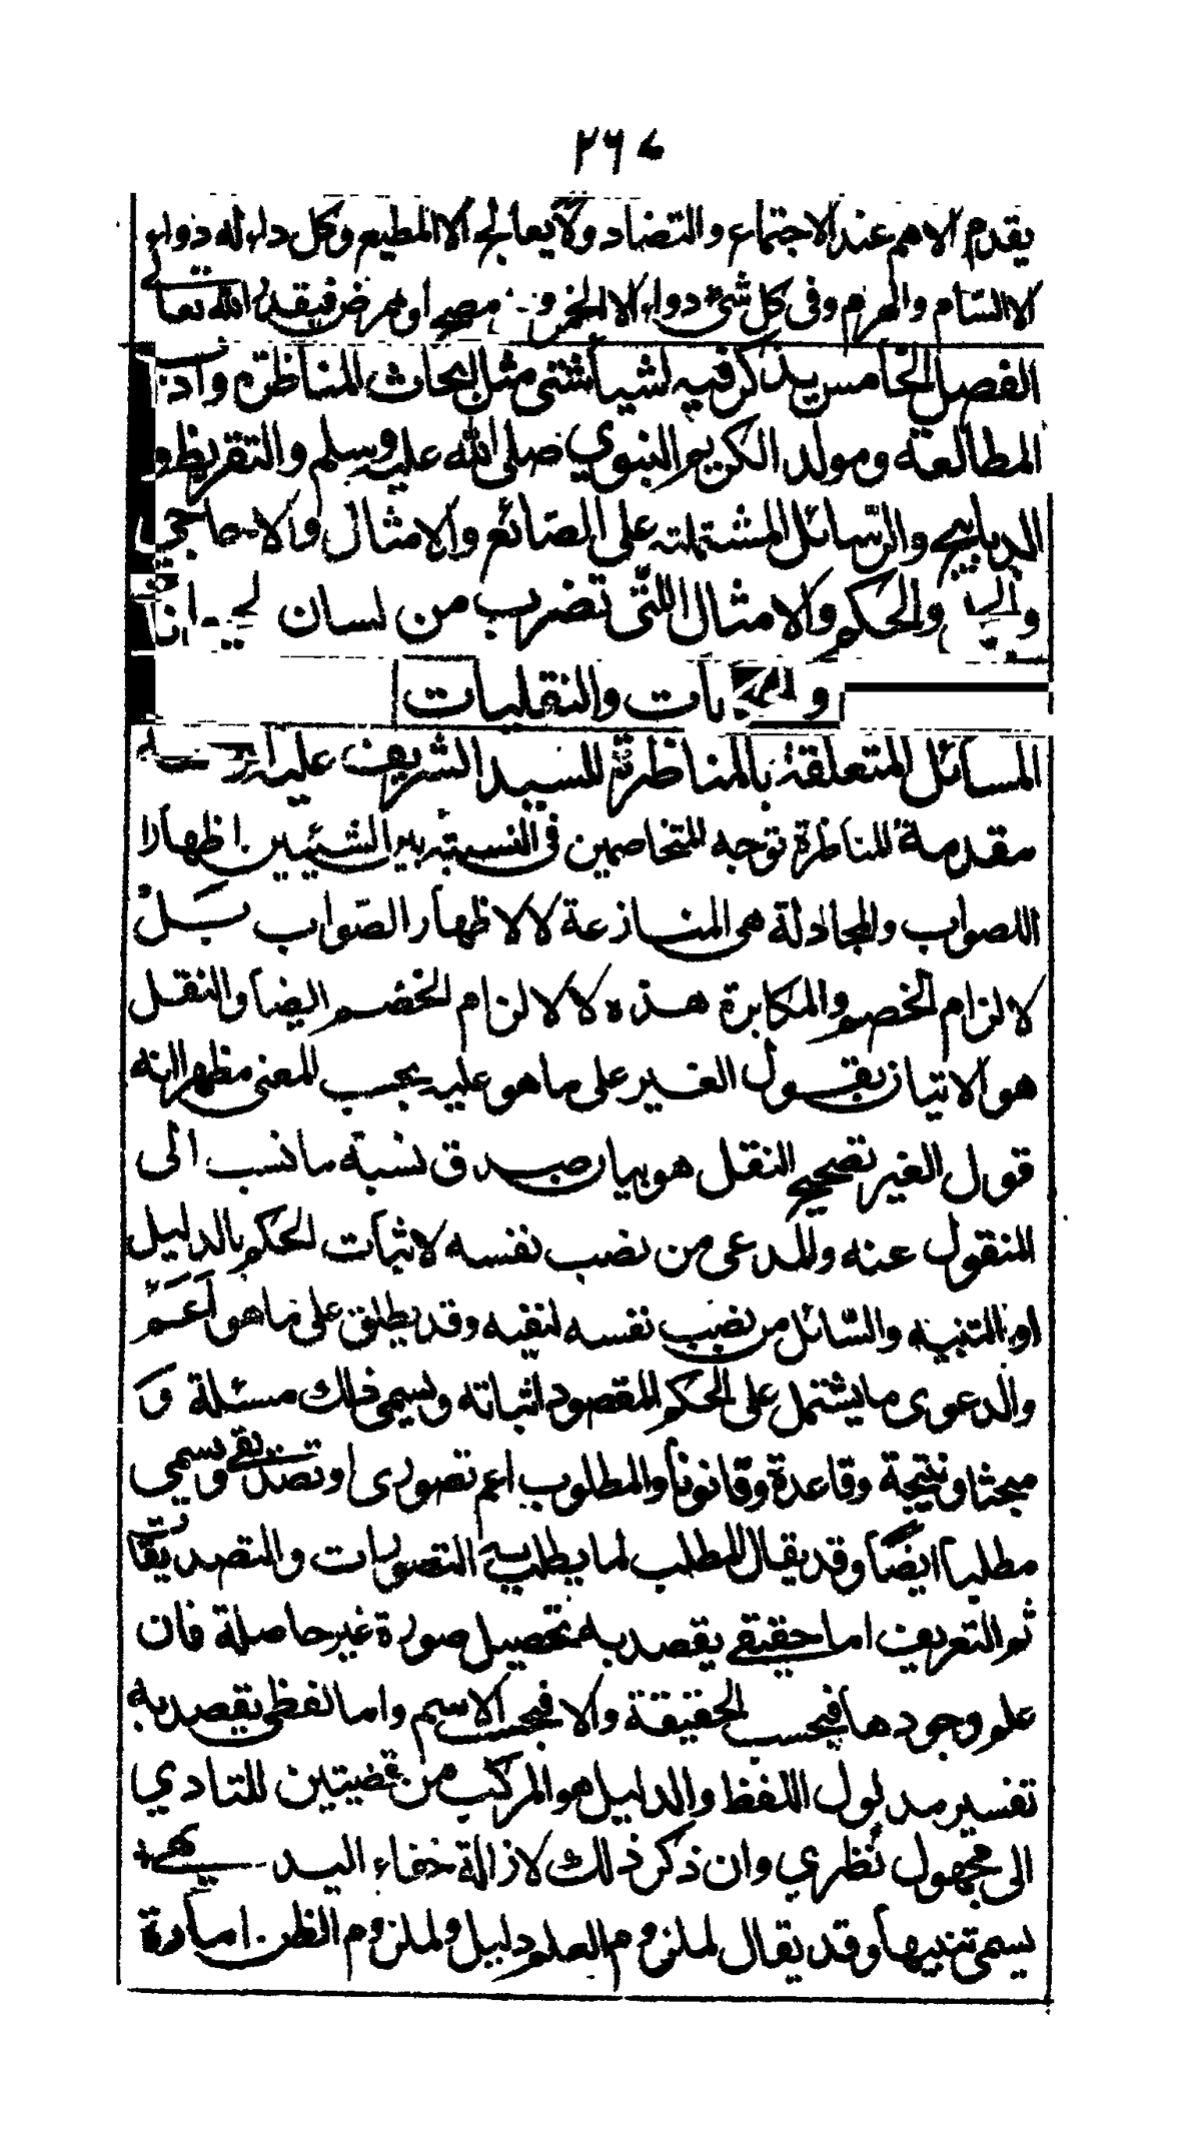 ٢٦٧
يقدم الاهم عند الاجتماع والتضاد ولا يعالج الا المطيع ولكل داء له دواء
الا السّام والهرم وفى كل شئ دواء الا الخمر فيقدر الله تعالى
الفصل الخامس يذكر فيه اشيأ شتى مثل ابحاث المناظرة وآداب
المطالعة ومولد الكريم النبوي صلى الله عليه وسلم والتقريظ و
الديابيج والرسائل المشتملته على الصّائع والامثال والاحاجى
والحكم والامثال اللتى تضرب من لسان
والنقليات
المسائل المتعلقة بالمناظرة للسيد الشريف عليه
مقدمة للمناظرة توجه المتخاصمين فى النسبته بين الشئيين اظهارا
للصواب والمجادلة هى المنازعة لا لاظهار الصّواب بَلْ
لالزام الخصم والمكابرة هذه لا لالزام الخضم ايضا والنقل
هو الاتيان بقول الغير على ما هو عليه بحسب المعنى مظهرا انه
قول الغير تصحيح النقل هو بيان صدق نسبة ما نسب الى
المنقول عنه والمدعى من نصب نفسه لاثبات الحكم بالدليل
او بالتنبيه والسّائل من نصب نفسه لنفيه وقد يطلق على ما هو اَعَمّ
والدعوى ما يشتمل على الحكم المقصود اثباته ويسمى ذلك مسئلة وَ
مبحثا ونتيجة وقاعدة وقانوناً والمطلوب اعم تصورى او تصديقے ويسمى
مطلباً ايضاً وقد يقال المطلب لما يطلب به التصورات والتصديقات
ثم التعريف اما حقيقے يقصد به تحصيل صورة غير حاصلة فان
علم وجودها فبحسب الحقيقة والا فبحسب الاسم واما لفظى يقصد به
تفسير مدلول اللفظ والدليل هو المركب من قضيتين للتادي
الى مجهول نظري وان ذكر ذلك لازالة خفاء البديهے
يسمى تنبيهاً وقد يقال لملزوم العلم دليل ولملزوم الظن امارة